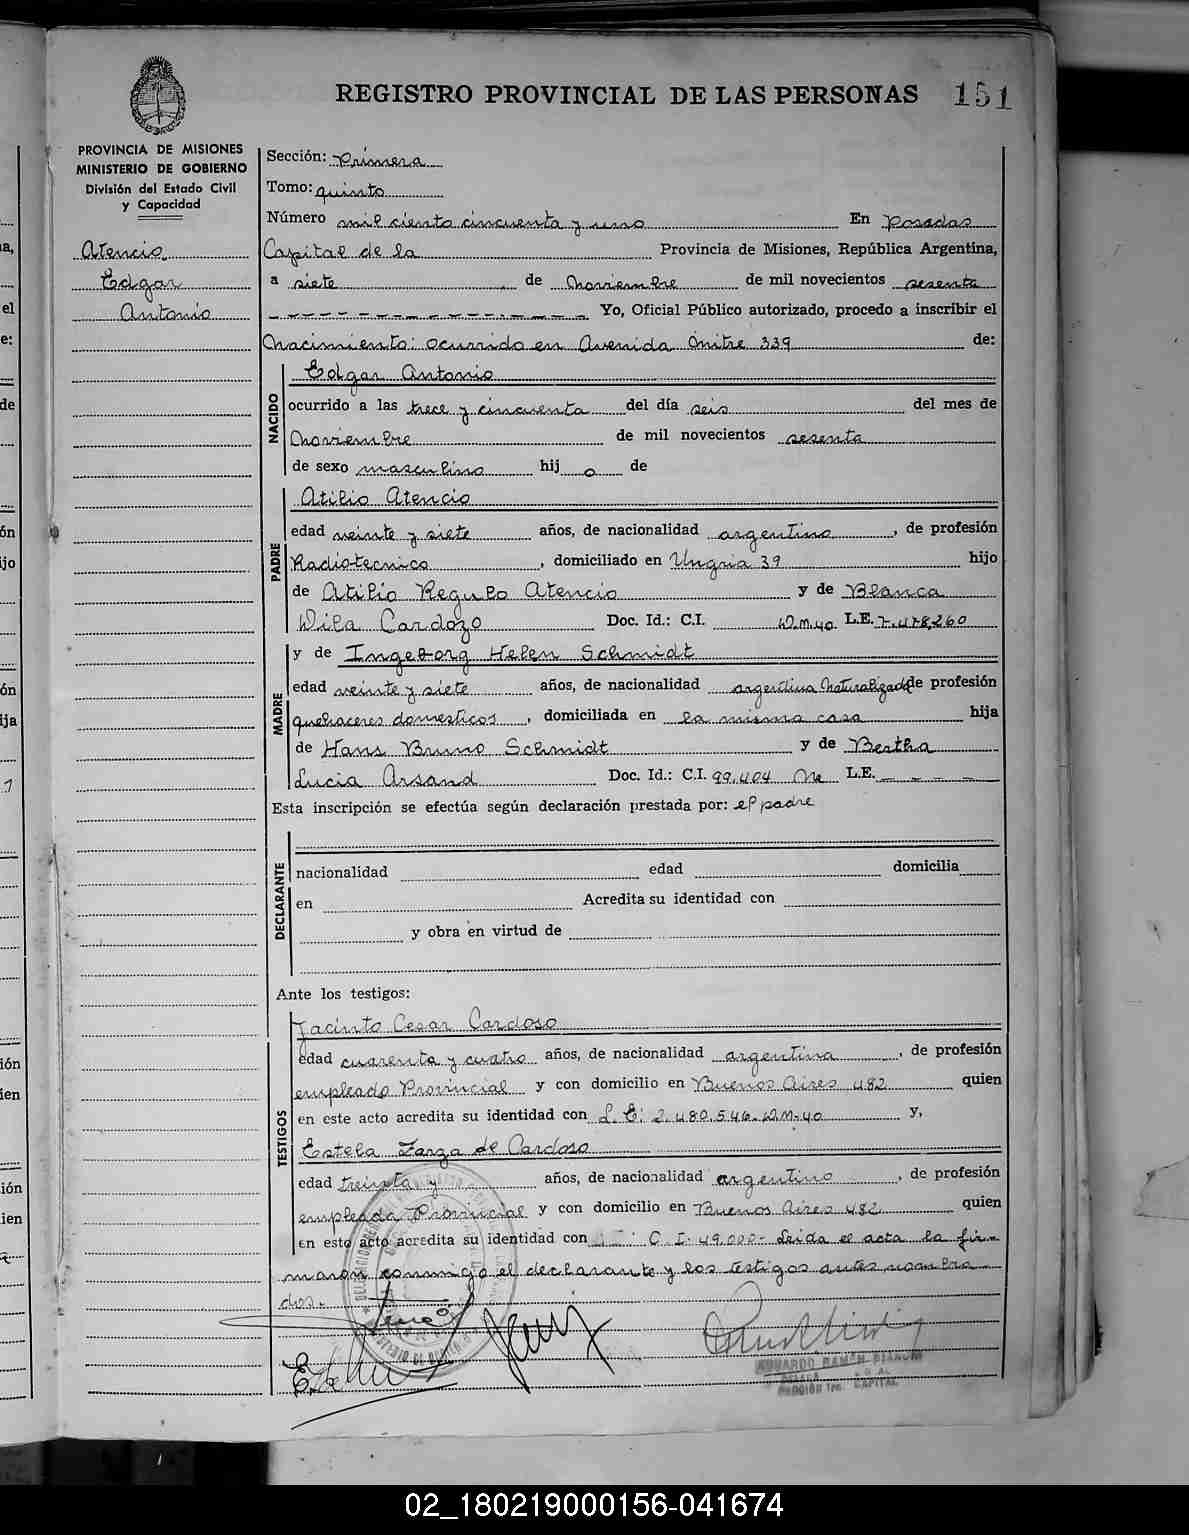 REGISTRO PROVINCIAL DE LAS PERSONAS 151
PROVINCIA DE MISIONES
MINISTERIO DE GOBIERNO
División del Estado Civil
y Capacidad
Atencio
Edgar
Antonio
Sección: Primera
Tomo: quinto
Número mil ciento cincuenta y uno En Posadas
Capital de la Provincia de Misiones, República Argentina,
a siete de Noviembre de mil novecientos sesenta
Yo, Oficial Público autorizado, procedo a inscribir el
Nacimiento: ocurrido en Avenida Mitre 339 de:
NACIDO
Edgar Antonio
ocurrido a las trece y cincuenta del día seis del mes de
Noviembre de mil novecientos sesenta
de sexo masculino hij o de
PADRE
Atilio Atencio
edad veinte y siete años, de nacionalidad argentino, de profesión
Radiotecnico, domiciliado en Ungria 39 hijo
de Atilio Regulo Atencio y de Blanca
Wila Cardozo Doc. Id.: C.I. D.M.40 L.E. 7.478,260
MADRE
y de Ingeborg Helen Schmidt
edad veinte y siete años, de nacionalidad argentina Naturalizada de profesión
quehaceres domesticos, domiciliada en la misma casa hija
de Hans Bruno Schmidt y de Bertha
Lucia Arsand Doc. Id.: C.I. 99.404 L.E.
Esta inscripción se efectúa según declaración prestada por: el padre
DECLARANTE
nacionalidad edad domicilia
en Acredita su identidad con
y obra en virtud de
Ante los testigos:
TESTIGOS
Jacinto Cesar Cardoso
edad cuarenta y cuatro años, de nacionalidad argentina, de profesión
empleado Provincial y con domicilio en Buenos Aires 482 quien
en este acto acredita su identidad con L.E: 2.480.546-D.M-40 y,
Estela Zarza de Cardoso
edad treinta y años, de nacionalidad argentino, de profesión
empleada Provincial y con domicilio en Buenos Aires 482 quien
en este acto acredita su identidad con C.I. 49.000- Leida el acta la fir-
maron conmigo el declarante y los testigos antes nombra-
dos.
EDUARDO RAMON BIANCHI
CAPITAL
02_180219000156-041674